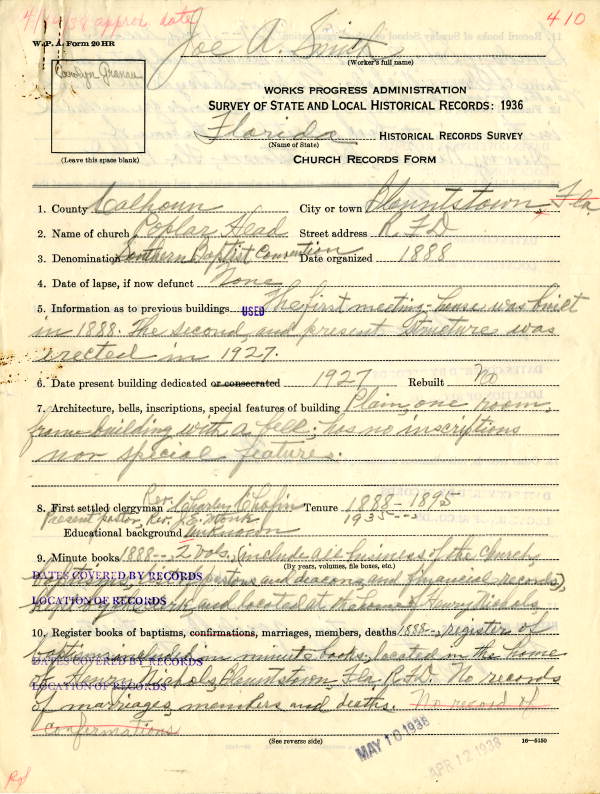 4/12/38 approx date
410
W. P. A. Form 20 HR
Joe A. Smith
(Worker's full name)
Carolyn
(Leave this space blank)
WORKS PROGRESS ADMINISTRATION
SURVEY OF STATE AND LOCAL HISTORICAL RECORDS: 1936
Florida HISTORICAL RECORDS SURVEY
(Name of State)
CHURCH RECORDS FORM
1. County Calhoun City or town Blountstown, Fla
2. Name of church Poplar Head Street address R.F.D
3. Denomination Southern Baptist Convention Date organized 1888
4. Date of lapse, if now defunct None
5. Information as to previous buildings USED The first meeting-house was built
in 1888. The second and present structure was
erected in 1927.
6. Date present building dedicated or consecrated 1927 Rebuilt No
7. Architecture, bells, inscriptions, special features of building Plain, one room,
frame building with a bell; has no inscriptions
nor special features.
8. First settled clergyman Rev. Charley Chafin Tenure 1888-1895
Present pastor, Rev. J.E. Monk 1935---
Educational background unknown
9. Minute books 1888-- 2 Vols, (include all business of the church,
(By years, volumes, file boxes, etc.)
DATES COVERED BY RECORDS
pastors and deacons, and financial records),
LOCATION OF RECORDS
and located at the home of Henry Nichols
10. Register books of baptisms, confirmations, marriages, members, deaths 1888--, register of
baptism included in minute books, located in the home
DATES COVERED BY RECORDS
of Henry Nichols, Blountstown, Fla. R.F.D. No records
LOCATION OF RECORDS
of marriages, members and deaths. No record of
confirmations
(See reverse side)
16-5150
MAY 10 1938
APR 12 1938